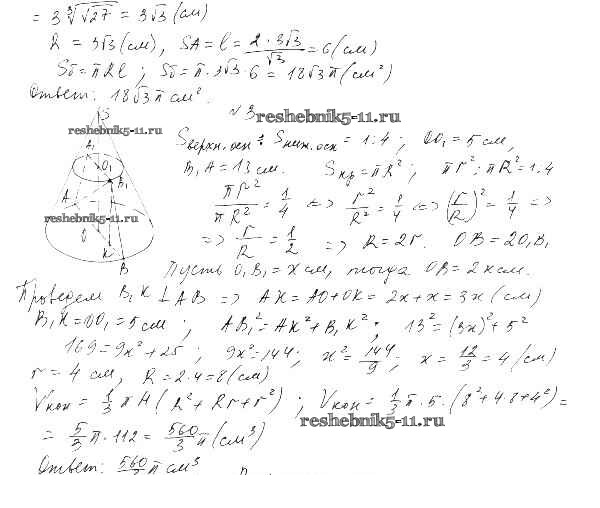 = 3∛√27 = 3√3 (см)
R = 3√3 (см), SA = l = 2·3√3/√3 = 6 (см)
Sб = πRl ; Sб = π·3√3·6 = 18√3π (см²)
Ответ: 18√3π см².
№ 3
reshebnik5-11.ru
reshebnik5-11.ru
Sверхн.осн : Sниж.осн = 1:4 ; OO₁ = 5 см,
B₁A = 13 см. Sкр = πR² ; πr² : πR² = 1:4
πr²/πR² = 1/4 <=> r²/R² = 1/4 <=> (r/R)² = 1/4 =>
=> r/R = 1/2 => R = 2r. OB = 2O₁B₁
reshebnik5-11.ru
S
A₁
O₁
B₁
A
O
K
B
Пусть O₁B₁ = x см, тогда OB = 2x см.
Проведем B₁K ⊥ AB => AK = AO + OK = 2x + x = 3x (см)
B₁K = OO₁ = 5 см ; AB₁² = AK² + B₁K² ; 13² = (3x)² + 5²
169 = 9x² + 25 ; 9x² = 144 ; x² = 144/9 ; x = 12/3 = 4 (см)
r = 4 см, R = 2·4 = 8 (см)
Vкон = 1/3 πH (R² + Rr + r²) ; Vкон = 1/3 π·5·(8² + 4·8 + 4²) =
reshebnik5-11.ru
= 5/3 π·112 = 560/3 π (см³)
Ответ: 560/3 π см³